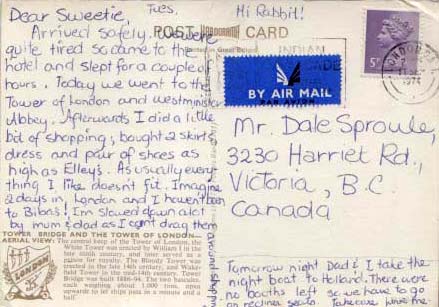 Tues,
Hi Rabbit!
Dear Sweetie,
Arrived safely. We were
quite tired so came to the
hotel and slept for a couple of
hours. Today we went to the
Tower of London and Westminster
Abbey. Afterwards I did a little
bit of shopping; bought 2 skirts
dress and pair of shoes as
high as Elley's. As usually every
thing I like doesn't fit. Imagine
2 days in London and I haven't been
to Bibas! I'm slowed down alot
by mum & dad as I can't drag them
around shopping
Tomorrow night Dad & I take the
night boat to Holland. There were
no booths left so we have to go
on recliner seats. Take care, love me
POST CARD
Printed in Great Britain
INDIAN
LONDON
1974
5P
BY AIR MAIL
PAR AVION
Mr. Dale Sproule,
3230 Harriet Rd.,
Victoria, B.C
Canada
TOWER BRIDGE AND THE TOWER OF LONDON—
AERIAL VIEW: The central keep of the Tower of London, the
White Tower was erected by William I in the
late 11th century, and later served as a
palace for royalty. The Bloody Tower was
erected in the late 14th century, and Wake-
field Tower in the mid-14th century. Tower
Bridge was built 1886-94. The two bascules
each weighing about 1,000 tons, open
upwards to let ships pass in a minute and a
half.
LONDON